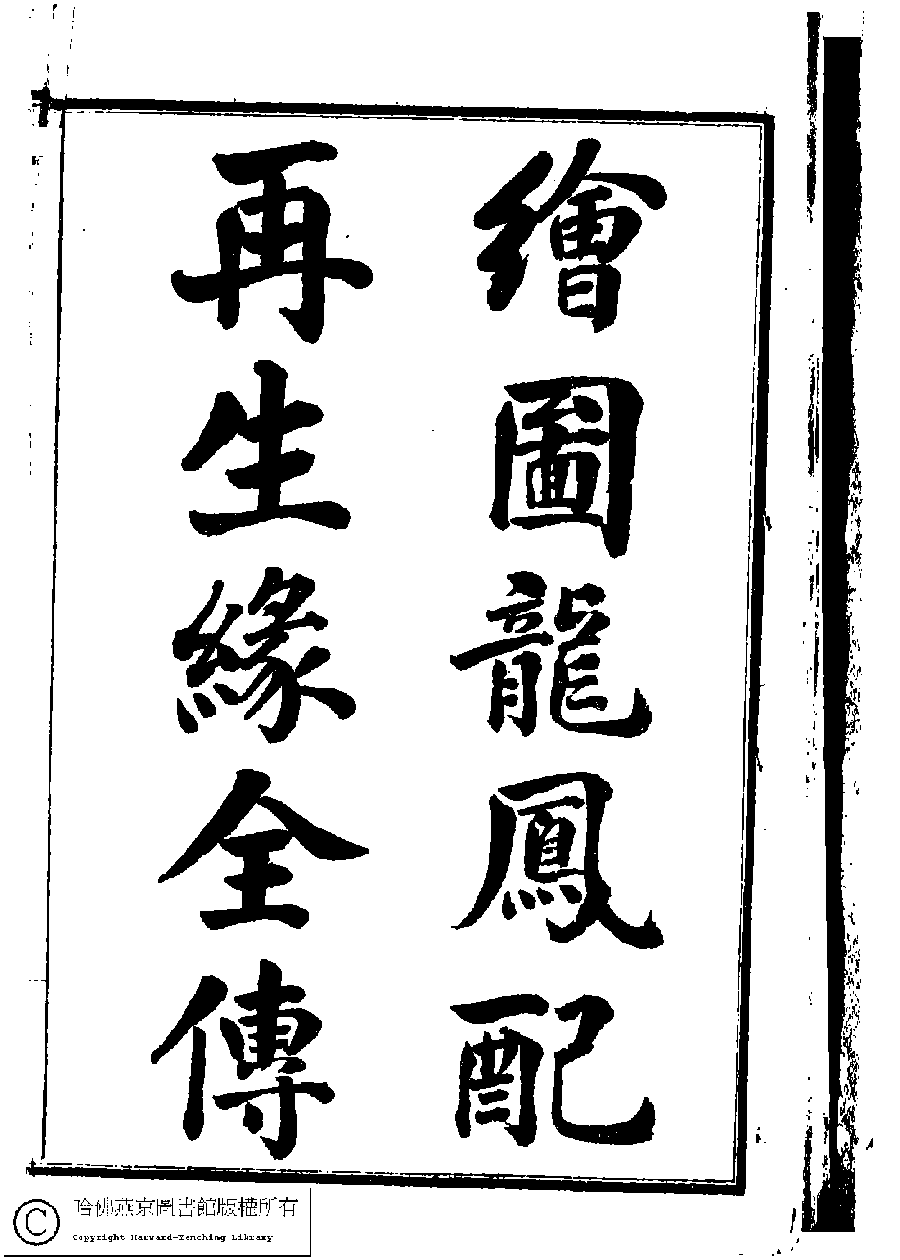 繪圖龍鳳配
再生緣全傳
哈佛燕京圖書館版權所有
Copyright Harvard-Yenching Library